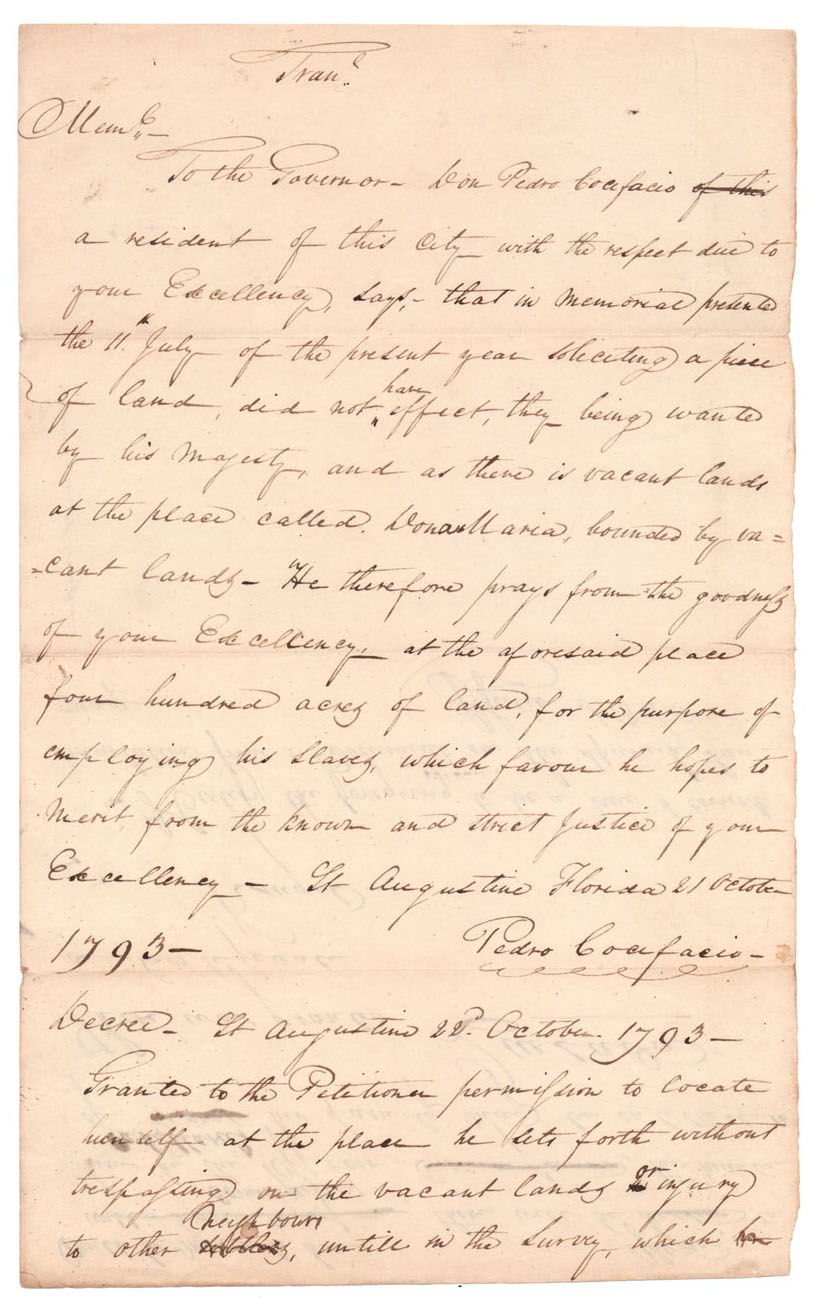 Tran.
Mem.
To the Governor - Don Pedro Cocifacio of this
a resident of this City with the respect due to
your Excellency, says, - that in memorial presented
the 11.th July of the present year soliciting a piece
of land, did not have effect, they being wanted
by his Majesty, and as there is vacant lands
at the place called. Dona Maria, bounded by va=
=cant lands - He therefore prays from the goodness
of your Excellency, at the aforesaid place
four hundred acres of land, for the purpose of
employing his slaves, which favour he hopes to
merit from the known and strict Justice of your
Excellency - St Augustine Florida 21 October
1793 - Pedro Cocifacio -
Decree - St Augustine 22d. October 1793 -
Granted to the Petitioner permission to locate
himself at the place he sets forth without
trespassing on the vacant lands or injury
to other neighbours, untill in the Survey, which